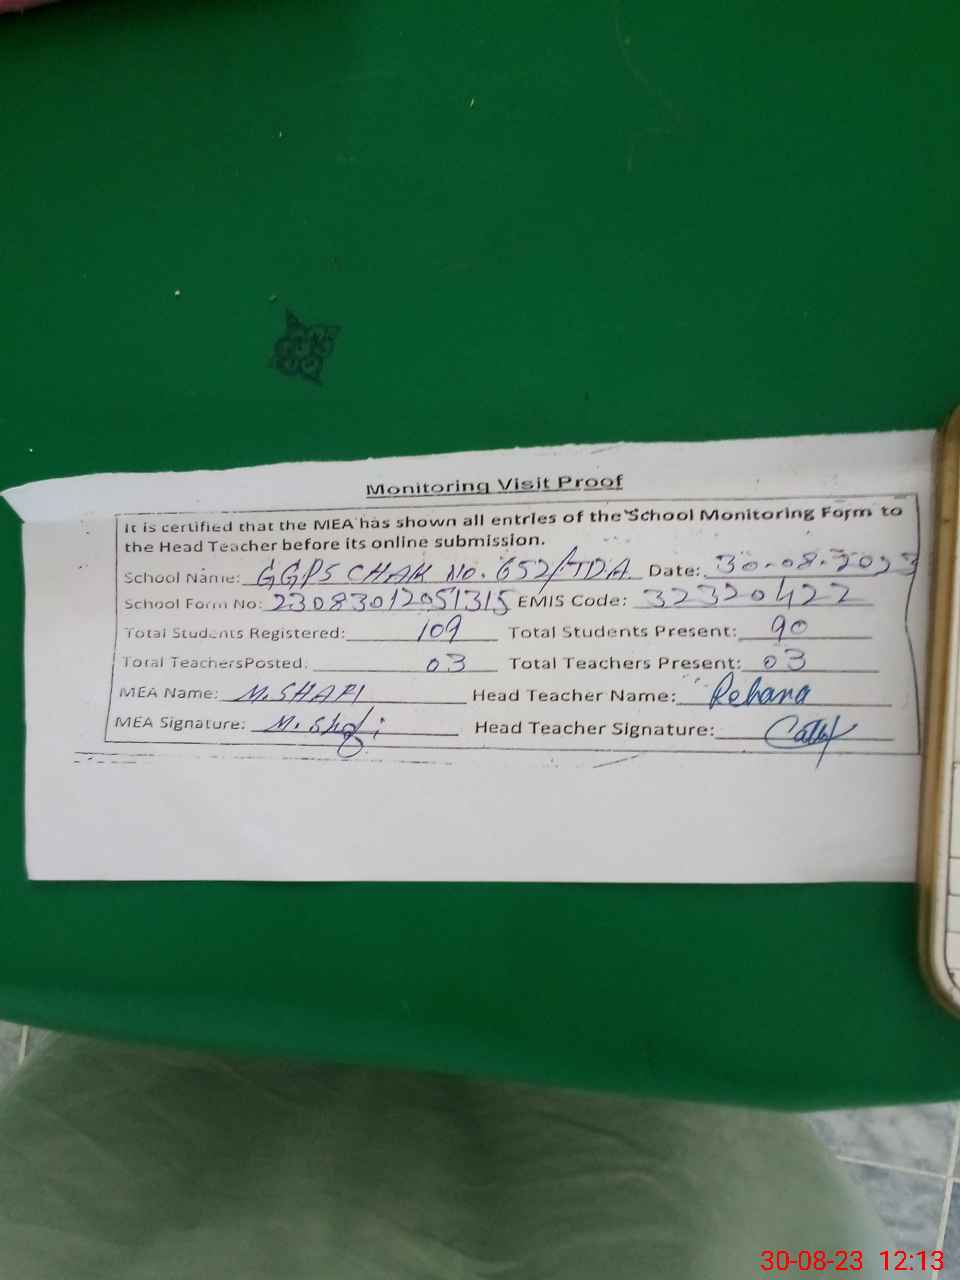 Monitoring Visit Proof
It is certified that the MEA has shown all entries of the School Monitoring Form to
the Head Teacher before its online submission.
School Name: GGPS CHAK NO. 652/TDA Date: 30-08-2023
School Form No: 23083012051315 EMIS Code: 32320422
Total Students Registered: 109 Total Students Present: 90
Total TeachersPosted: 03 Total Teachers Present: 03
MEA Name: M.SHAFI Head Teacher Name: Rehana
MEA Signature: M.Shafi Head Teacher Signature:
30-08-23 12:13